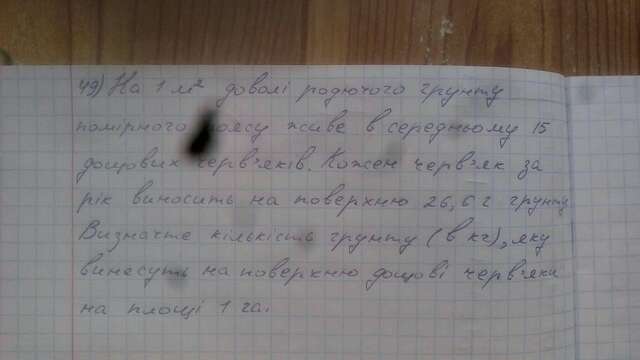 49) На 1 м² доволі родючого грунту
помірного поясу живе в середньому 15
дощових черв'яків. Кожен черв'як за
рік виносить на поверхню 26,6 г грунту
Визначте кількість грунту (в кг), яку
винесуть на поверхню дощові черв'яки
на площі 1 га.